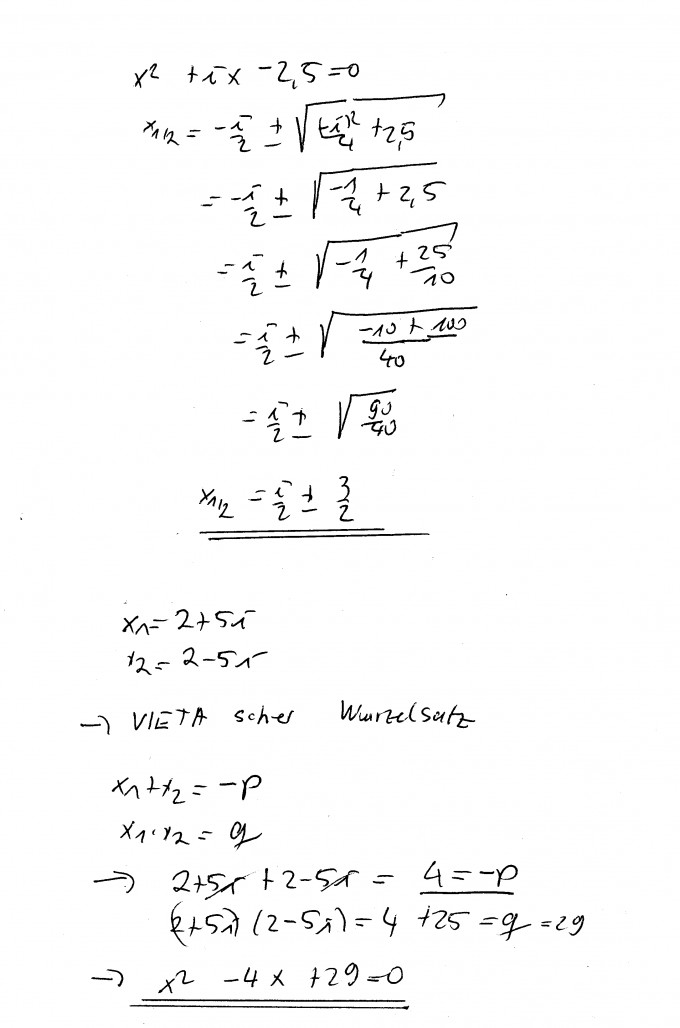 x² + ix - 2,5 = 0
x₁/₂ = -i/2 ± √((-i)²/4 + 2,5)
= -i/2 ± √(-1/4 + 2,5)
= i/2 ± √(-1/4 + 25/10)
= i/2 ± √((-10 + 100)/40)
= i/2 ± √(90/40)
x₁/₂ = i/2 ± 3/2
x₁ = 2+5i
x₂ = 2-5i
→ VIETA scher Wurzelsatz
x₁+x₂ = -p
x₁·x₂ = q
→ 2+5i + 2-5i = 4 = -p
(2+5i) (2-5i) = 4 + 25 = q = 29
→ x² - 4x + 29 = 0